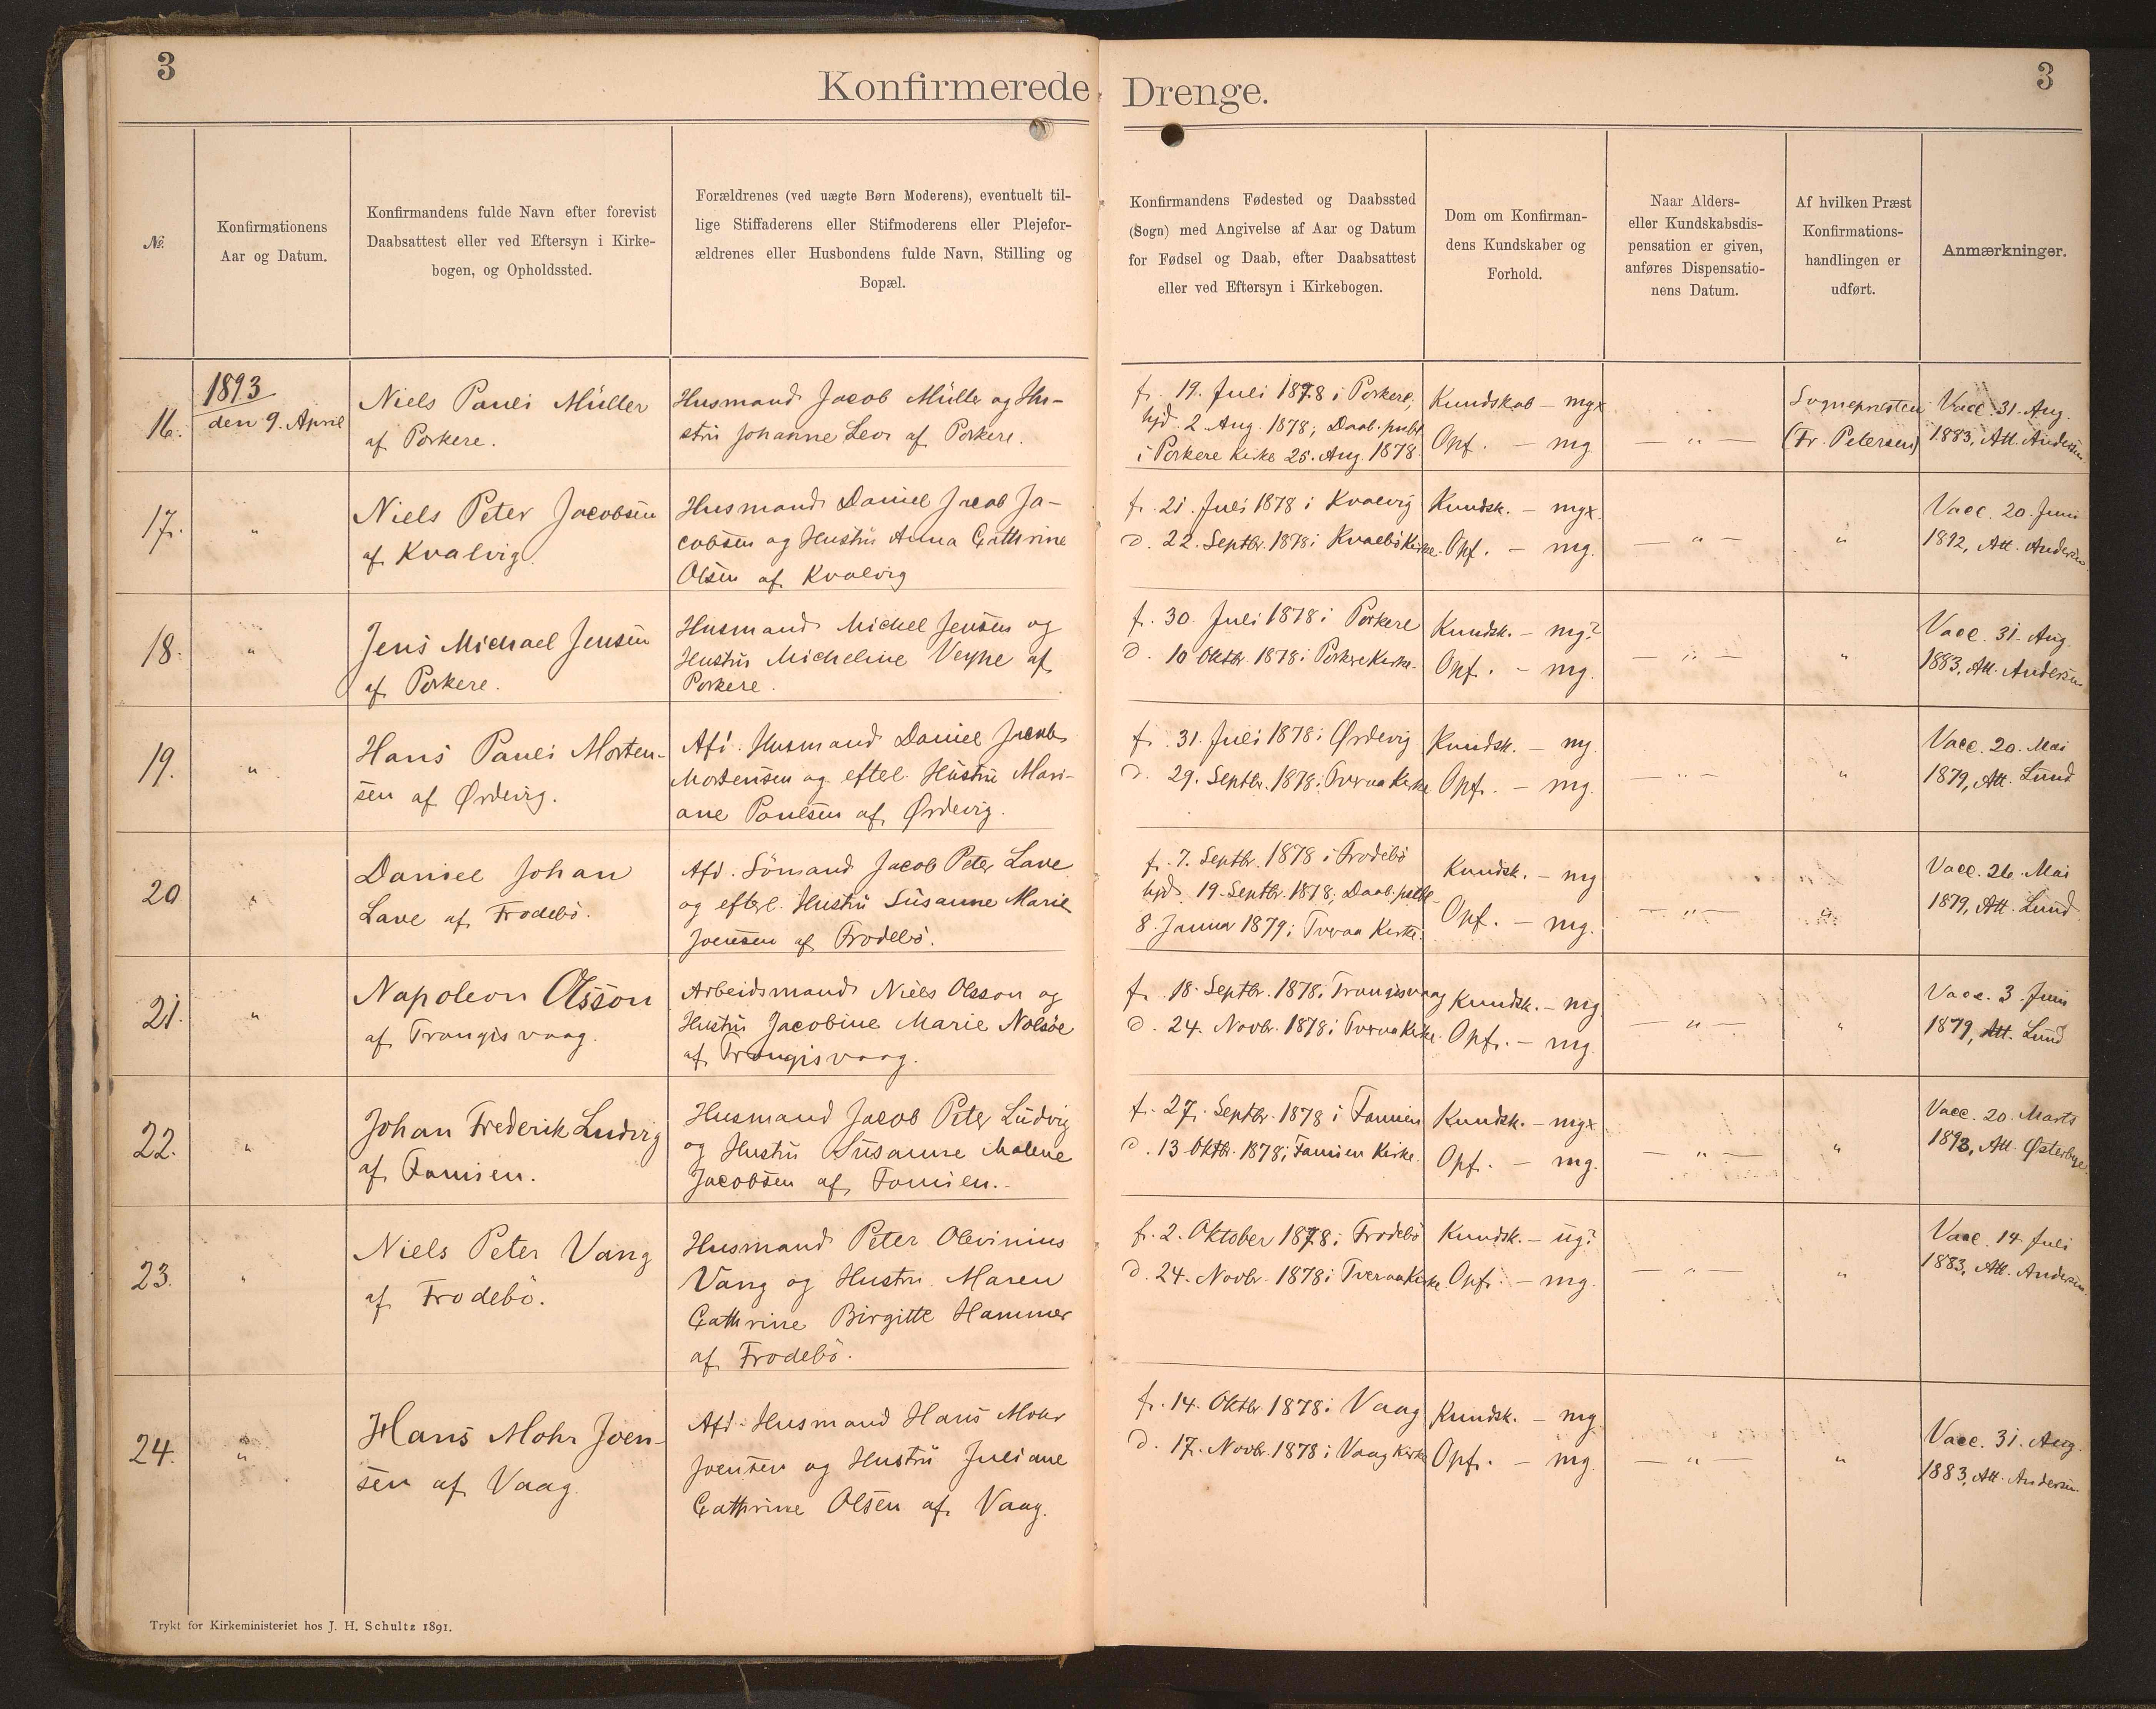 3
Konfirmerede Drenge.
3
№.
Konfirmationens
Aar og Datum.
Konfirmandens fulde Navn efter forevist
Daabsattest eller ved Eftersyn i Kirke-
bogen, og Opholdssted.
Forældrenes (ved uægte Børn Moderens), eventuelt til-
lige Stiffaderens eller Stifmoderens eller Plejefor-
ældrenes eller Husbondens fulde Navn, Stilling og
Bopæl.
Konfirmandens Fødested og Daabssted
(Sogn) med Angivelse af Aar og Datum
for Fødsel og Daab, efter Daabsattest
eller ved Eftersyn i Kirkebogen.
Dom om Konfirman-
dens Kundskaber og
Forhold.
Naar Alders-
eller Kundskabsdis-
pensation er given,
anføres Dispensatio-
nens Datum.
Af hvilken Præst
Konfirmations-
handlingen er
udført.
Anmærkninger.
16.
1893
den 9. April
Niels Pauli Müller
af Porkere.
Husmand Jacob Müller og Hu-
stru Johanne Leor af Porkere.
f. 19. Juli 1878 i Porkere,
hjd. 2. Aug. 1878; Daab. publ.
i Porkere Kirke 25. Aug. 1878.
Kundskab - mgx
Opf. - mg
— " —
Sognepræsten
(Fr. Petersen)
Vacc. 31. Aug.
1883, Att. Andersen
17.
"
Niels Peter Jacobsen
af Kvalvig.
Husmand Daniel Jacob Ja-
cobsen og Hustru Anna Cathrine
Olsen af Kvalvig
f. 21. Juli 1878 i Kvalvig
d. 22. Septbr. 1878 i Kvalbö Kirke.
Kundsk. - mgx.
Opf. - mg.
— " —
"
Vacc. 20. Juni
1892, Att. Andersen.
18.
"
Jens Michael Jensen
af Porkere.
Husmand Michel Jensen og
Hustru Micheline Veyhe af
Porkere.
f. 30. Juli 1878 i Porkere
d. 10 Oktbr. 1878 i Porkere Kirke.
Kundsk. - mg?
Opf. - mg.
— " —
"
Vacc. 31. Aug.
1883, Att. Andersen
19.
"
Hans Pauli Morten-
sen af Ørdevig.
Afd. Husmand Daniel Jacob
Mortensen og efterl. Hustru Mari-
ane Poulsen af Ørdevig.
f. 31. Juli 1878 i Ørdevig
d. 29. Septbr. 1878 i Tveraa Kirke
Kundsk. - mg.
Opf. - mg.
— " —
"
Vacc. 20. Mai
1879, Att. Lund
20
"
Daniel Johan
Lave af Frodebö.
Afd. Sömand Jacob Peter Lave
og efterl. Hustru Susanne Marie
Joensen af Frodebö.
f. 7. Septbr. 1878 i Frodebö
hjd. 19. Septbr. 1878; Daab. publ.
8. Januar 1879 i Tveraa Kirke.
Kundsk. - mg
Opf. - mg.
— " —
"
Vacc. 26. Mai
1879, Att. Lund
21.
"
Napoleon Olsson
af Trangisvaag.
Arbeidsmand Niels Olsson og
Hustru Jacobine Marie Nolsøe
af Trangisvaag.
f. 18. Septbr. 1878 i Trangisvaag
d. 24. Novbr. 1878 i Tveraa Kirke.
Kundsk. - mg
Opf. - mg.
— " —
"
Vacc. 3. Juni
1879, Att. Lund
22.
"
Johan Frederik Ludvig
af Famien.
Husmand Jacob Peter Ludvig
og Hustru Susanne Malene
Jacobsen af Famien.
f. 27. Septbr. 1878 i Famien
d. 13 Oktbr. 1878 i Famien Kirke.
Kundsk. - mgx
Opf. - mg.
— " —
"
Vacc. 20. Marts
1893, Att. Østerbye.
23.
"
Niels Peter Vang
af Frodebö.
Husmand Peter Olevinius
Vang og Hustru Maren
Cathrine Birgitte Hammer
af Frodebö.
f. 2. Oktober 1878 i Frodebö
d. 24. Novbr. 1878 i Tveraa Kirke.
Kundsk. - ug?
Opf. - mg.
— " —
"
Vacc. 14. Juli
1883, Att. Andersen.
24.
"
Hans Mohr Joen-
sen af Vaag.
Afd. Husmand Hans Mohr
Joensen og Hustru Juliane
Cathrine Olsen af Vaag.
f. 14. Oktbr. 1878 i Vaag
d. 17. Novbr. 1878 i Vaag Kirke
Kundsk. - mg.
Opf. - mg.
— " —
"
Vacc. 31. Aug.
1883, Att. Andersen.
Trykt for Kirkeministeriet hos J. H. Schultz 1891.